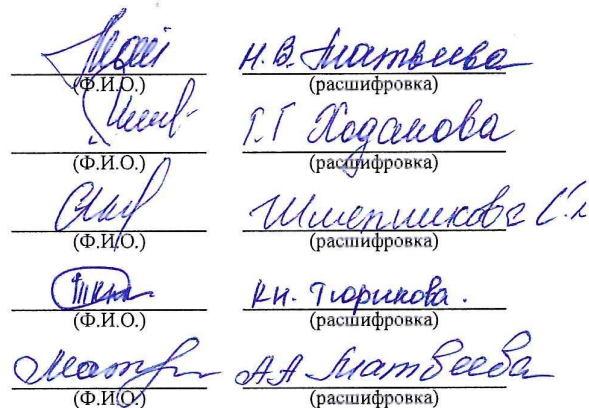 Н.В. Матвеева
(Ф.И.О.) (расшифровка)
Г.Г Ходакова
(Ф.И.О.) (расшифровка)
(Ф.И.О.) (расшифровка)
К.Н. Тюрикова.
(Ф.И.О.) (расшифровка)
А.А Матвеева
(Ф.И.О.) (расшифровка)